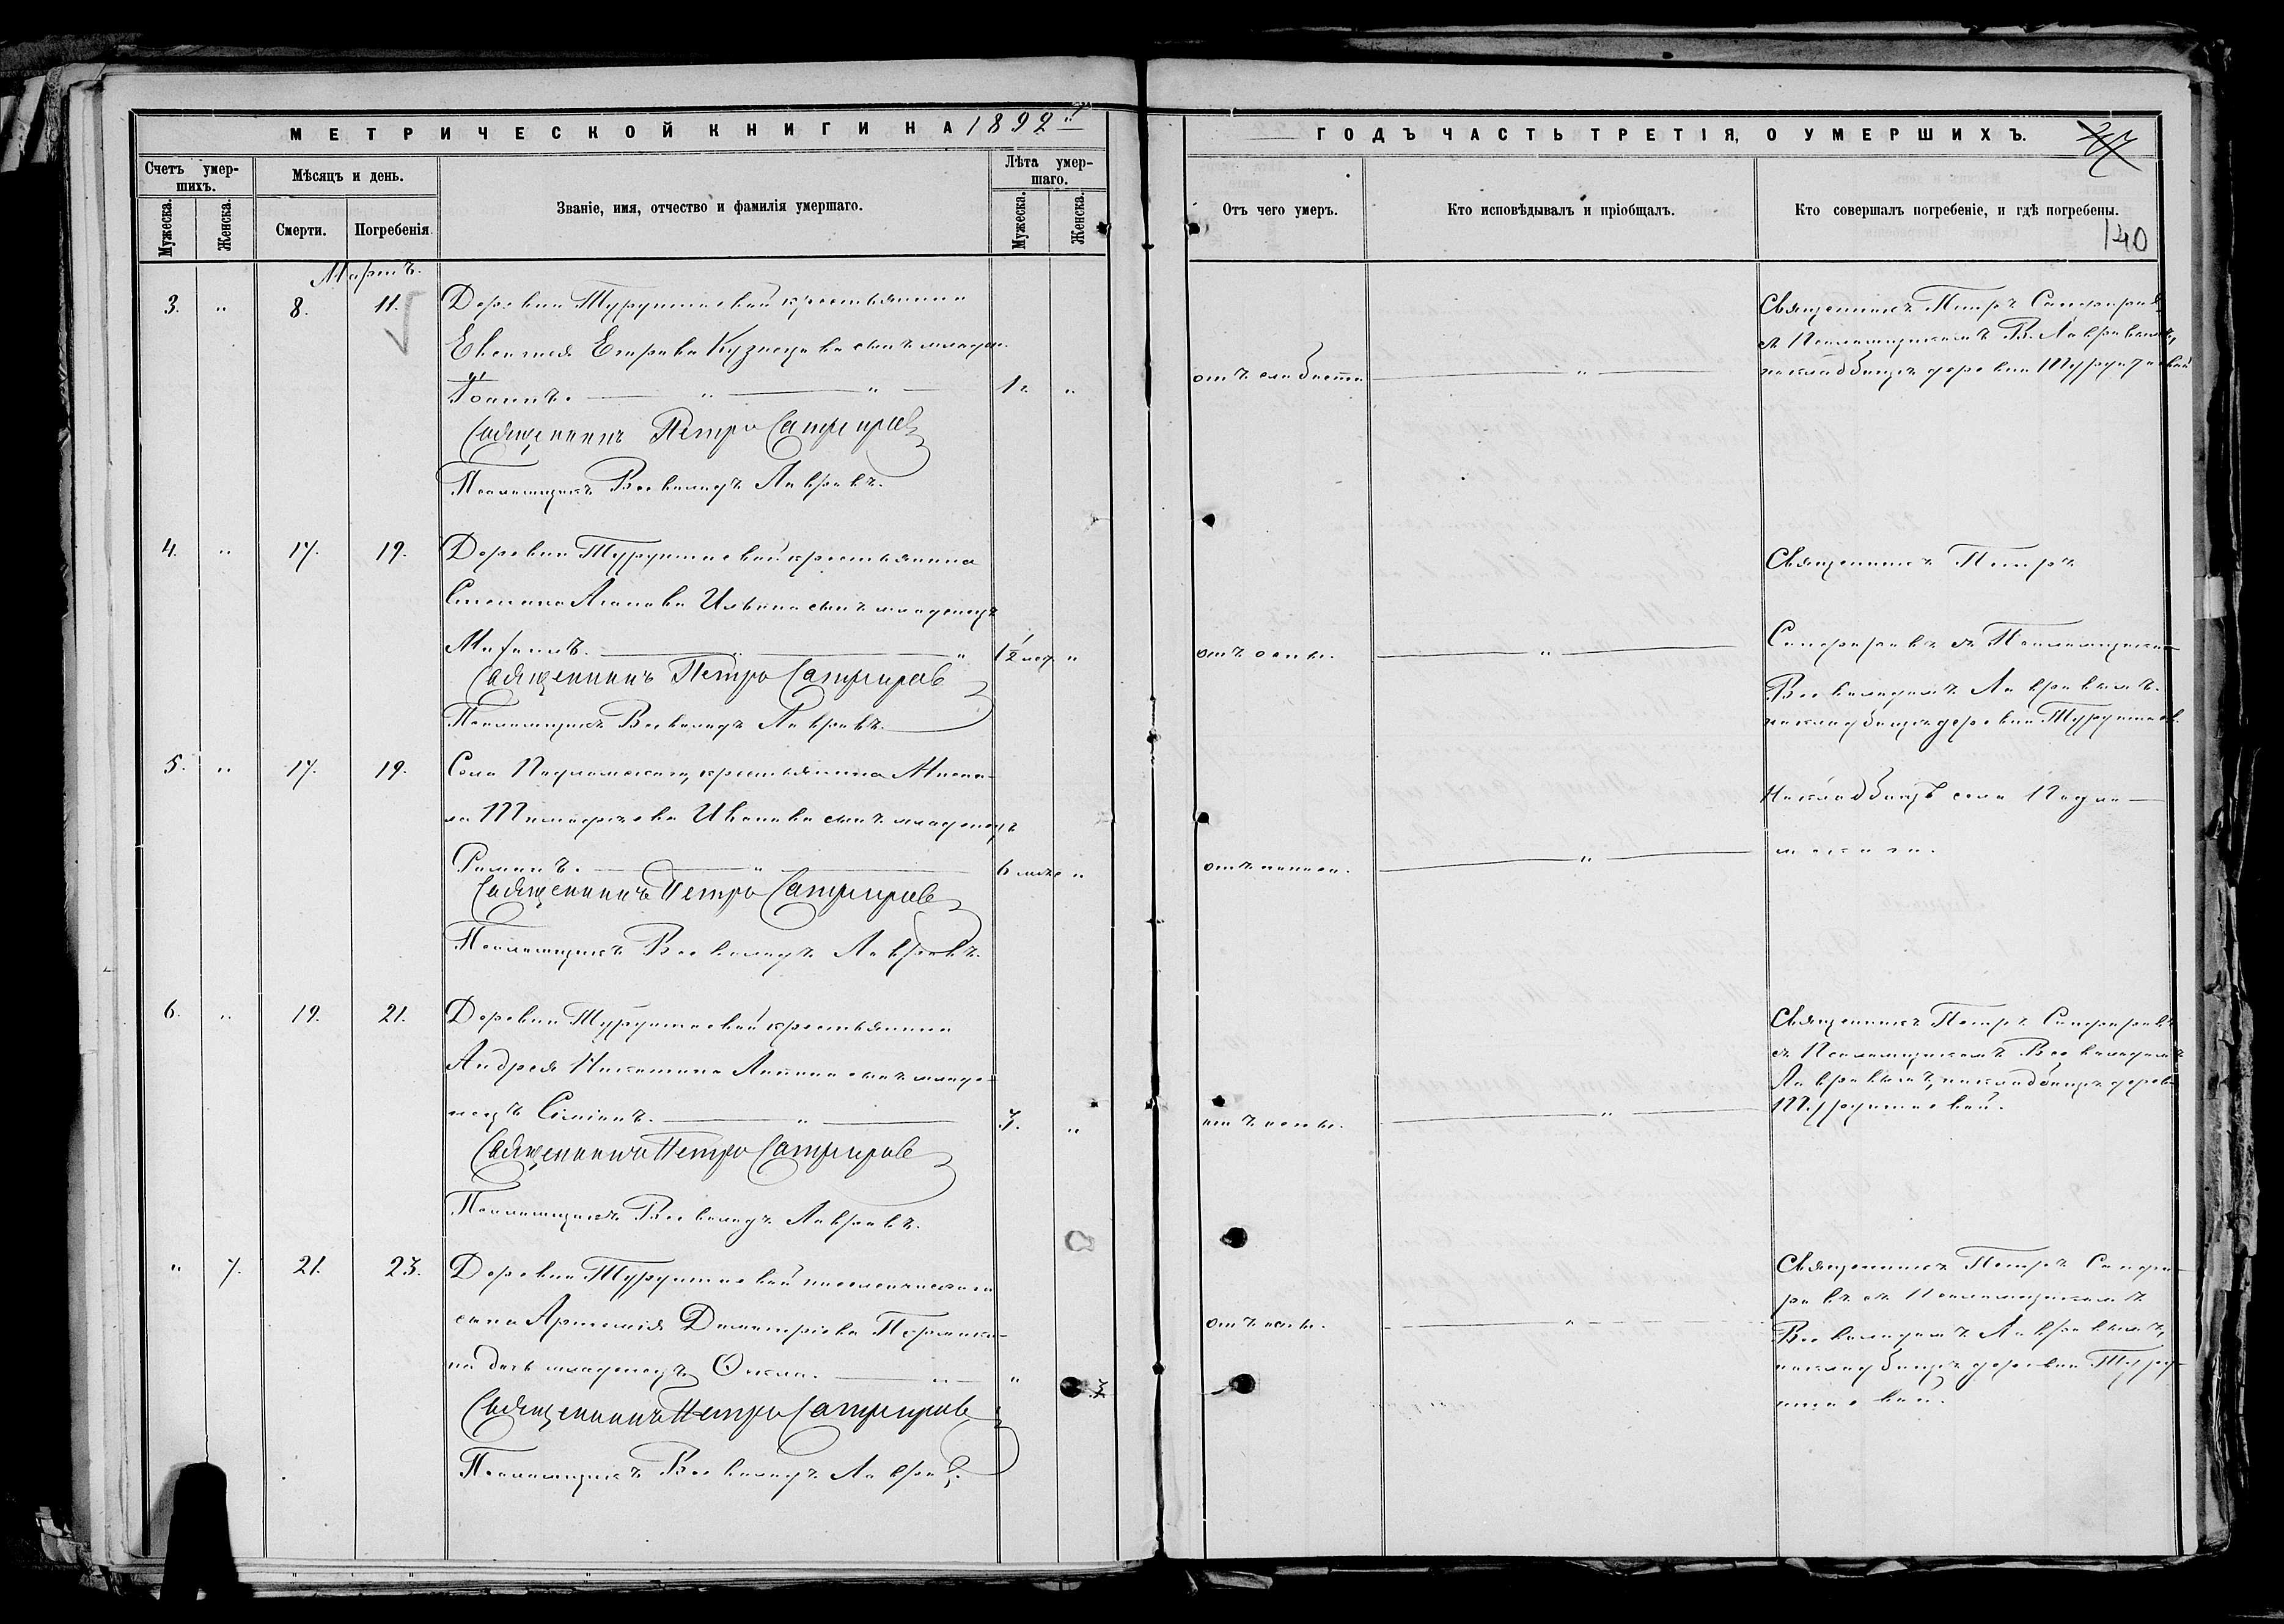 МЕТРИЧЕСКОЙ КНИГИ НА 1892й
Счетъ умершихъ.
Мѣсяцъ и день.
Званіе, имя, отчество и фамилія умершаго.
Лѣта умершаго.
Мужеска.
Женска.
Смерти.
Погребенія.
Мужеска.
Женска.
Мартъ.
3. " 8. 11. Деревни Турунтаевой крестьянина
Егорова Кузнецова сынъ младен.
Іоаннъ. " " 1 г. "
Священникъ Петръ Сапфировъ
Псаломщикъ Всеволодъ Лавровъ.
4. " 17. 19. Деревни Турунтаевой крестьянина
Степана Агапова Ильина сынъ младенецъ
" " 1½ мѣс. "
Священникъ Петръ Сапфировъ
Псаломщикъ Всеволодъ Лавровъ.
5. " 17. 19. Села крестьянина
Тимофеева Иванова сынъ младенецъ
Романъ. " 6 мѣс. "
Священникъ Петръ Сапфировъ
Псаломщикъ Всеволодъ Лавровъ.
6. " 19. 21. Деревни Турунтаевой крестьянина
Андрея Никитина Лапина сынъ младе-
нецъ Симеонъ. " 3. "
Священникъ Петръ Сапфировъ
Псаломщикъ Всеволодъ Лавровъ.
" 7. 21. 23. Деревни Турунтаевой поселенческаго
сына Артемія Димитріева
на дочь младенецъ Фекла. " " 3
Священникъ Петръ Сапфировъ
Псаломщикъ Всеволодъ Лавровъ.
ГОДЪ ЧАСТЬ ТРЕТІЯ, О УМЕРШИХЪ.
Отъ чего умеръ.
Кто исповѣдывалъ и пріобщалъ.
Кто совершалъ погребеніе, и гдѣ погребены.
140
отъ слабости "
Священникъ Петръ Сапфировъ
съ Псаломщикомъ В. Лавровымъ,
на кладбищѣ деревни Турунтаевой
отъ оспы. "
Священникъ Петръ
Сапфировъ съ Псаломщикомъ
Всеволодомъ Лавровымъ.
на кладбищѣ деревни Турунтаев.
отъ "
На кладбищѣ села
отъ оспы. "
Священникъ Петръ Сапфировъ
съ Псаломщикомъ Всеволодомъ
Лавровымъ, на кладбищѣ дерев.
Турунтаевой.
отъ оспы. "
Священникъ Петръ Сапфи-
ровъ съ Псаломщикомъ
Всеволодомъ Лавровымъ,
на кладбищѣ деревни Турун-
таевой.